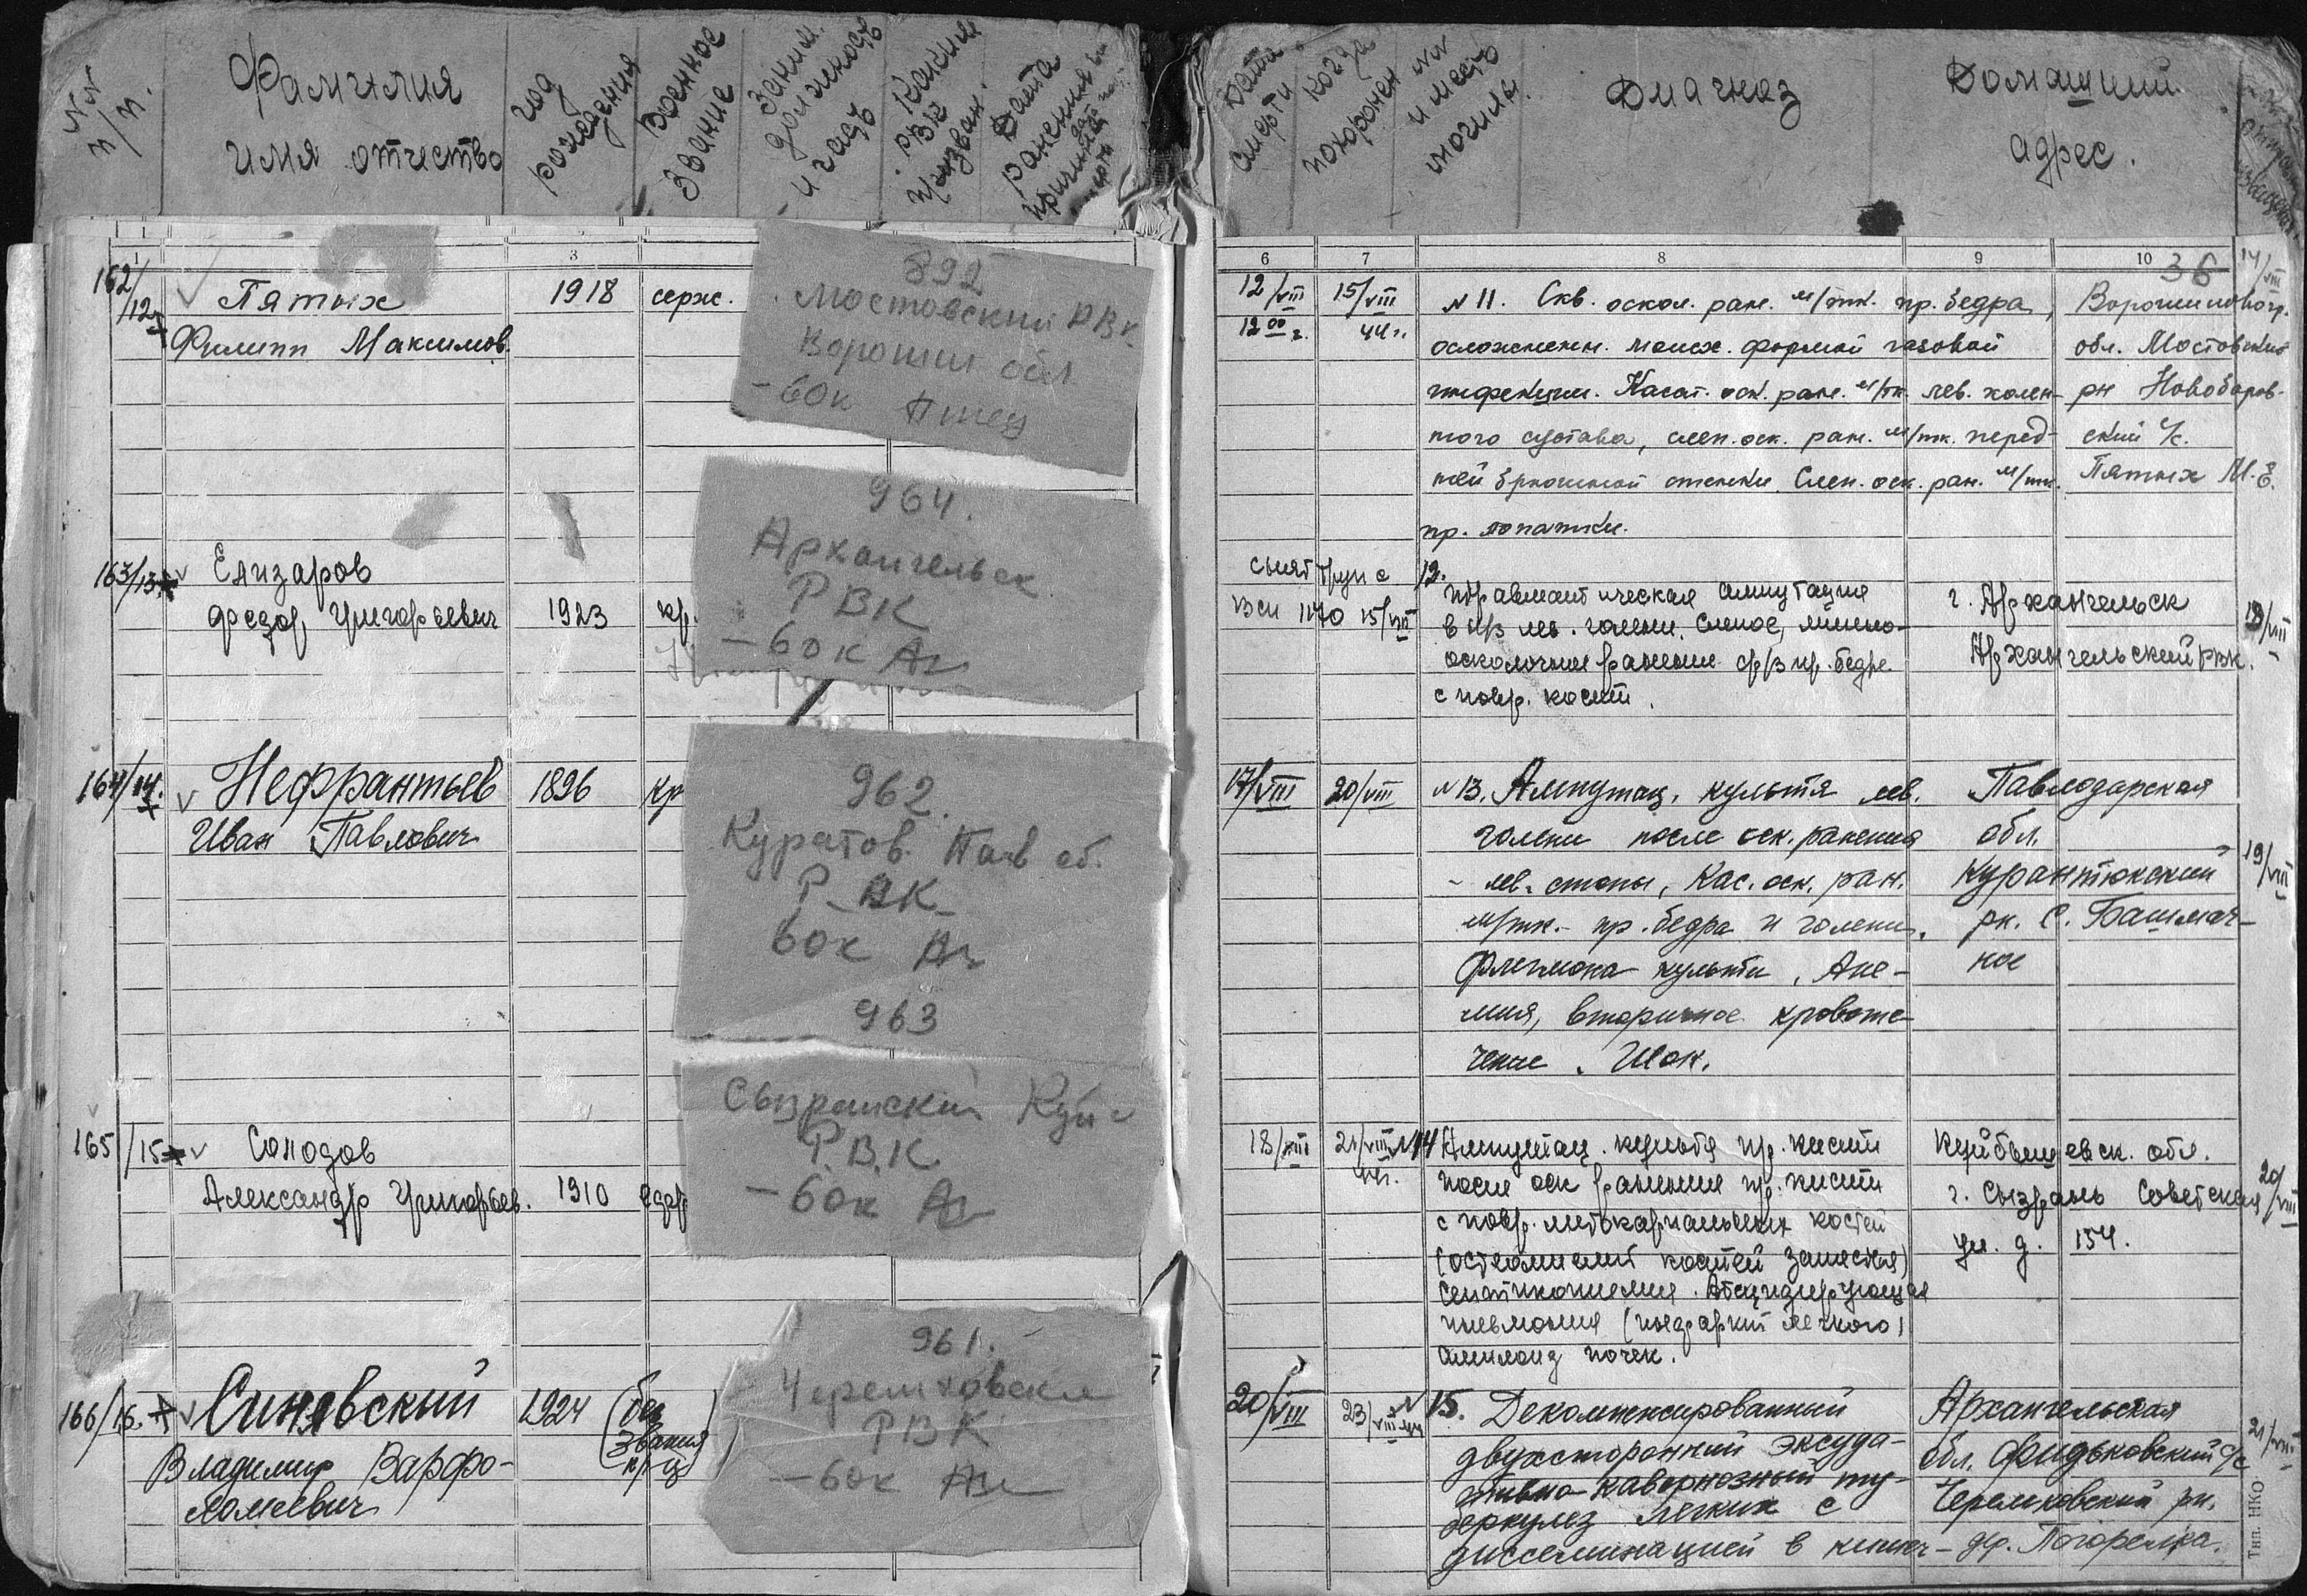 NN п/п.
Фамилия имя отчество
год рождения
Военное звание
Заним. должность и часть
Каким РВК призван.
Дата ранения
Дата смерти
Когда похоронен
NN и место могилы.
Диагноз
Домашний адрес.
1 3
6 7 8 9 10
36
162/12
Пятых
1918
серж.
Филипп Максимов.
892
Мостовский РВК
Ворошил обл
-60к
12/VIII 15/VIII
12 00 44г.
14/VIII
N 11. Скв. оскол. ран. м/тк. пр. бедра,
осложненн. молн. формой газовой
инфекции. Касат. оск. ран. м/тк. лев. колен-
ного сустава, слеп. оск. ран. м/тк. перед-
ней брюшной стенки. Слеп. оск. ран. м/тк.
пр. лопатки.
Ворошиловогр.
обл. Мостовский
рн Новоборов-
ский с/с.
Пятых М. Е.
163/13
Елизаров
Федор Григорьевич 1923 кр.
964.
Архангельск
РВК
-60к
снят труп с
15/VIII
12.
Травматическая ампутация
в н/з лев. голени. Слепое, мино-
осколочные ранение ср/з пр. бедра
с повр. кости.
г. Архангельск
Архангельский РВК.
164/14.
Нефрантьев 1896 кр
Иван Павлович
962.
Куратов. Пав об.
РВК
60к
963
17/VIII 20/VIII
N 13. Ампутац. культя лев.
голени после оск. ранения
лев. стопы, Кас. оск. ран.
м/тк. пр. бедра и голени.
Флегмона культи, Ане-
мия, вторичное кровоте-
чение. Шок.
Павлодарская
обл.
Курантюкский
рн. С. Башмач-
ное
19/VIII
165/15
Солодов
Александр Григорьев. 1910
Сызранский Куй
Р.В.К.
-60к
18/VIII 21/VIII N14
Ампутац. культя пр. кисти
после оск ранения пр. кисти
с повр. метакарпальных костей
(остеомиелит костей запястья)
Септикопиемия. Абсцедирующая
пневмония (инфаркт легкого)
амилоид почек.
Куйбышевск. обл.
г. Сызрань Советская
ул. д. 154.
20/VIII
166/16.
Синявский 1924 (без
звания
кр-ц)
Владимир Варфо-
ломеевич
961.
Черемховски
РВК
-60к
20/VIII 23/VIII
N 15. Декомпенсированный
двухсторонний эксуда-
тивно-кавернозный ту-
беркулез легких с
диссеминацией в кишеч-
Архангельская
обл. Фидьковский с/с
Черемховский рн.
др. Погорелка.
21/VIII
Тип. НКО